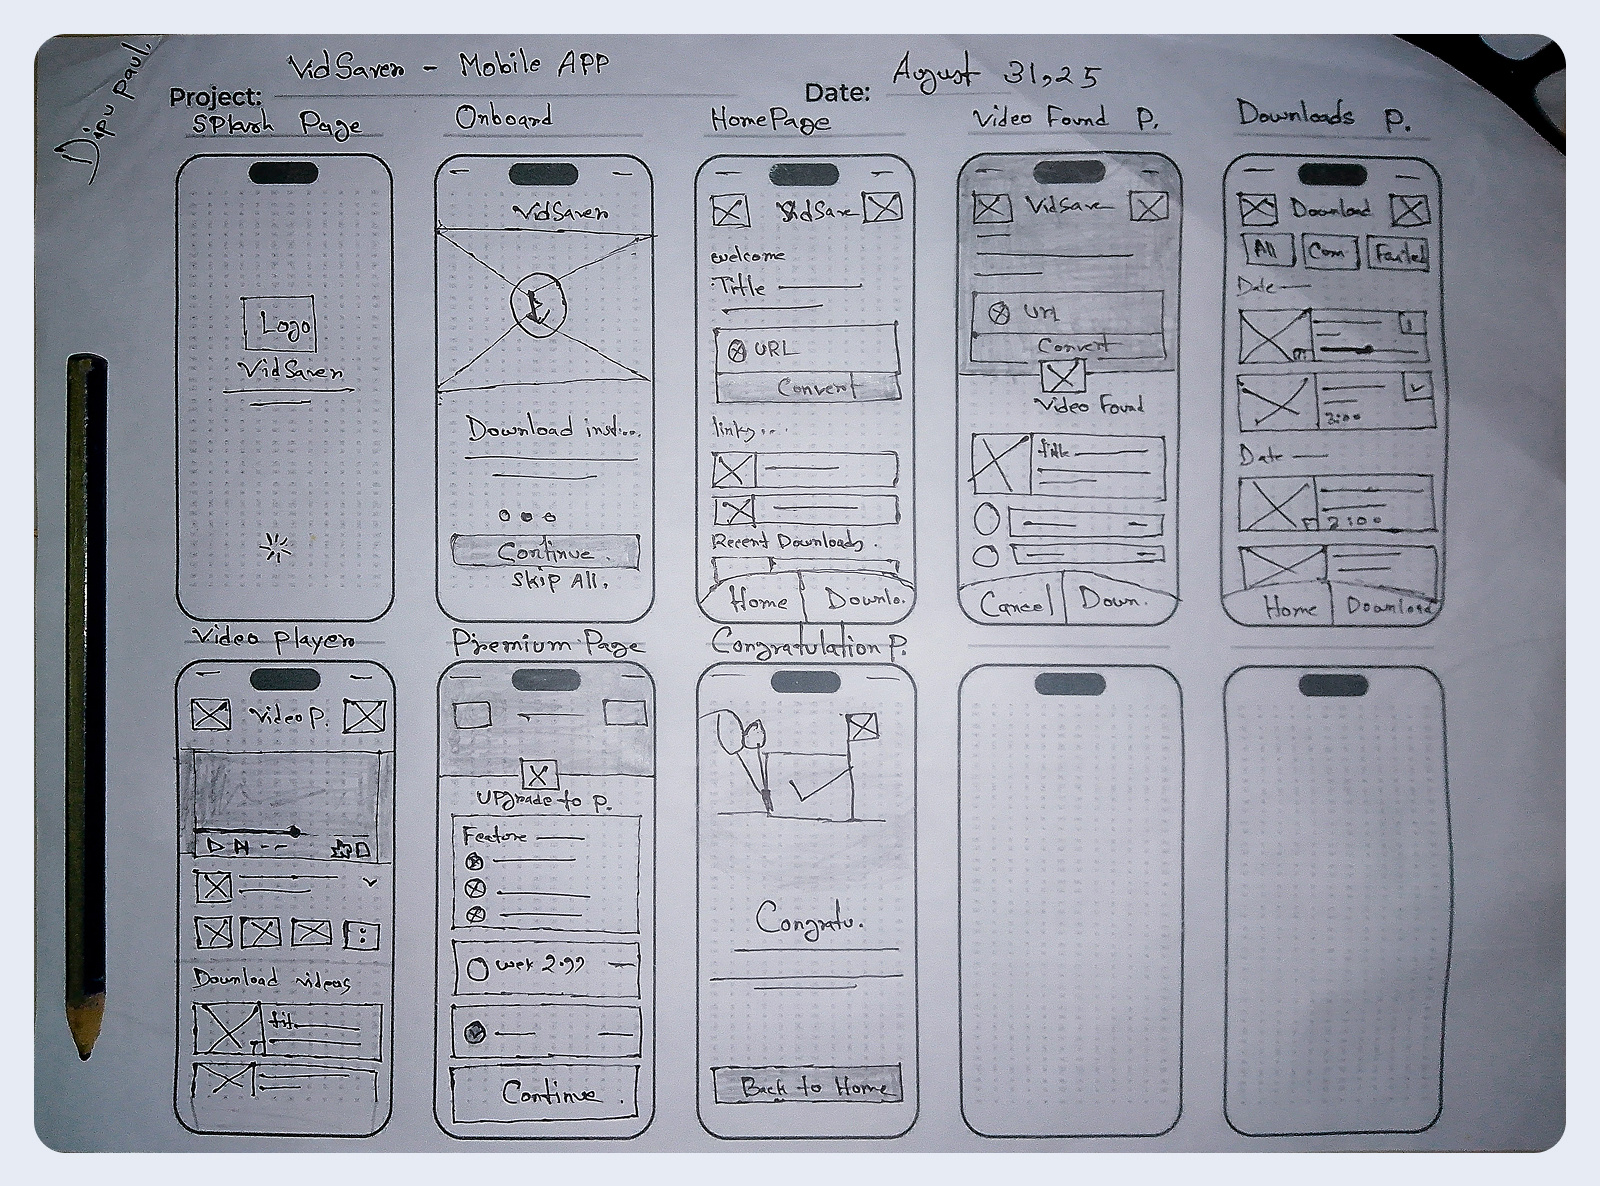 Dipu paul.
Project: VidSaver - Mobile APP
Date: August 31,25
Splash Page
Logo
VidSaver
Onboard
VidSaver
Download inst....
Continue.
Skip All.
HomePage
VidSave
welcome
Title
URL
Convert
links...
Recent Downloads.
Home
Downlo.
Video Found P.
VidSave
Url
Convert
Video Found
title
Cancel
Down.
Downloads P.
Download
All
Com.
Failed
Date
2:00
Date
2:00
Home
Download
Video player
Video P.
Download videos
tit.
Premium Page
Upgrade to P.
Feature
wek 2.99
Continue.
Congratulation P.
Congratu.
Back to Home